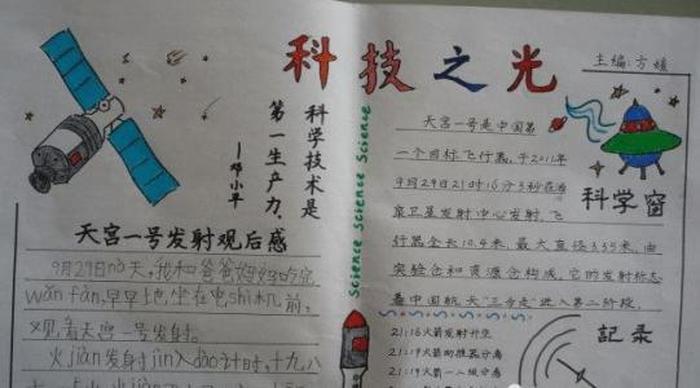 科技之光
主编：方媛
科学技术是
第一生产力．
—邓小平
Science Science Science
天宫一号发射观后感
9月29日的天，我和爸爸妈妈吃完
wǎn fàn，早早地坐在电shì机前，
观看天宫一号发射。
火jiàn发射jìn入dào计时，十九八
天宫一号是中国第
一个目标飞行器，于2011年
9月29日21时16分3秒在酒
泉卫星发射中心发射，飞
行器全长10.4米，最大直径3.35米，由
实验舱和资源舱构成。它的发射标志
着中国航天"三步走"进入第二阶段。
科学窗
記录
21:16火箭发射升空
21:19火箭助推器分离
21:19火箭一二级分离